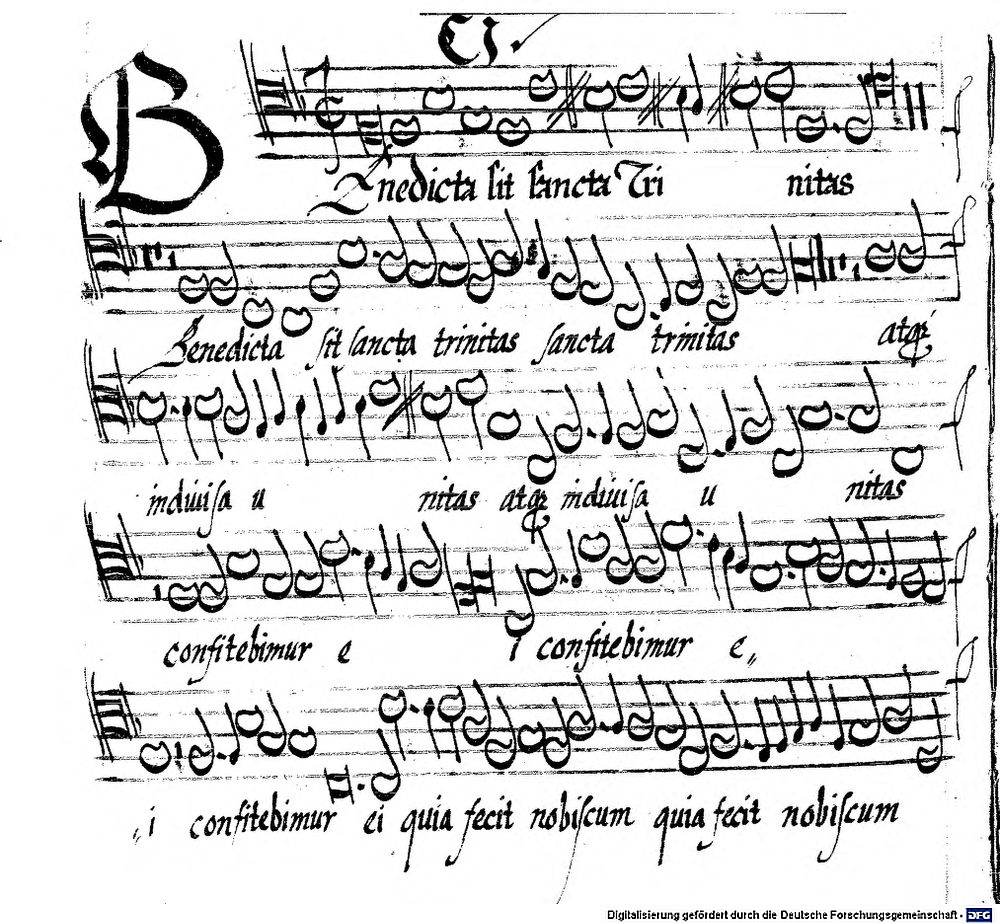 CJ.
BEnedicta sit sancta Tri nitas
Benedicta sit sancta trinitas sancta trinitas atqꝫ
indiuisa u nitas atqꝫ indiuisa u nitas
confitebimur e i confitebimur e„
„i confitebimur ei quia fecit nobiscum quia fecit nobiscum
Digitalisierung gefördert durch die Deutsche Forschungsgemeinschaft - DFG